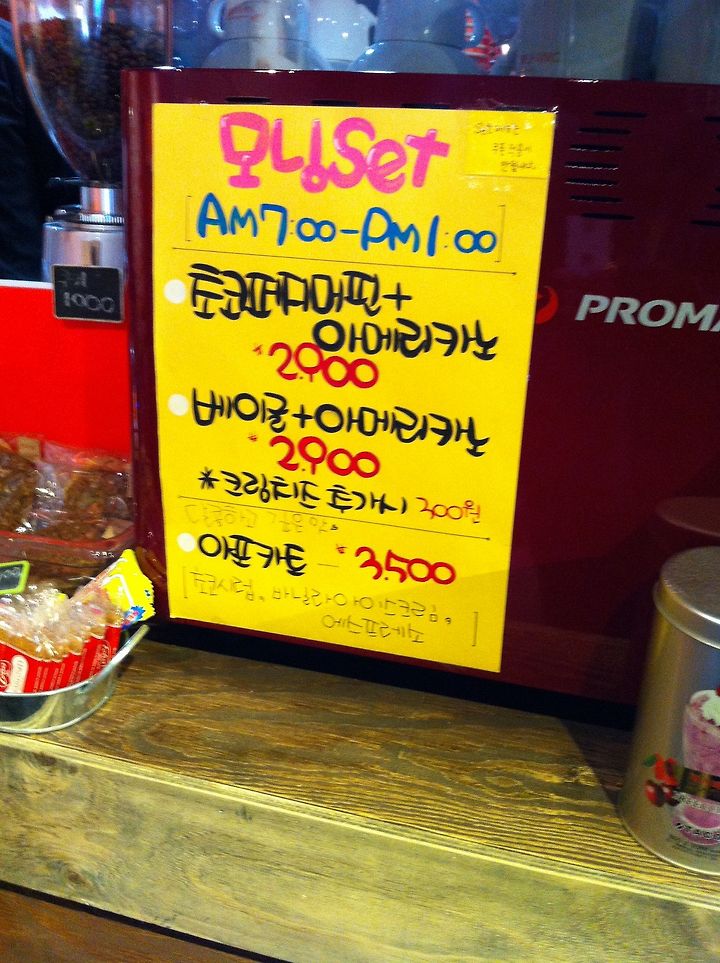 모닝Set
[AM7:00-PM1:00]
쵸코퍼지머핀+
아메리카노
₩2.900
베이글+아메리카노
₩2.900
*크림치즈 추가시 300원
달콤하고 깊은 맛
아포카토 - ₩3.500
[쵸코시럽, 바닐라아이스크림,
에스프레소]
1000
PROMA